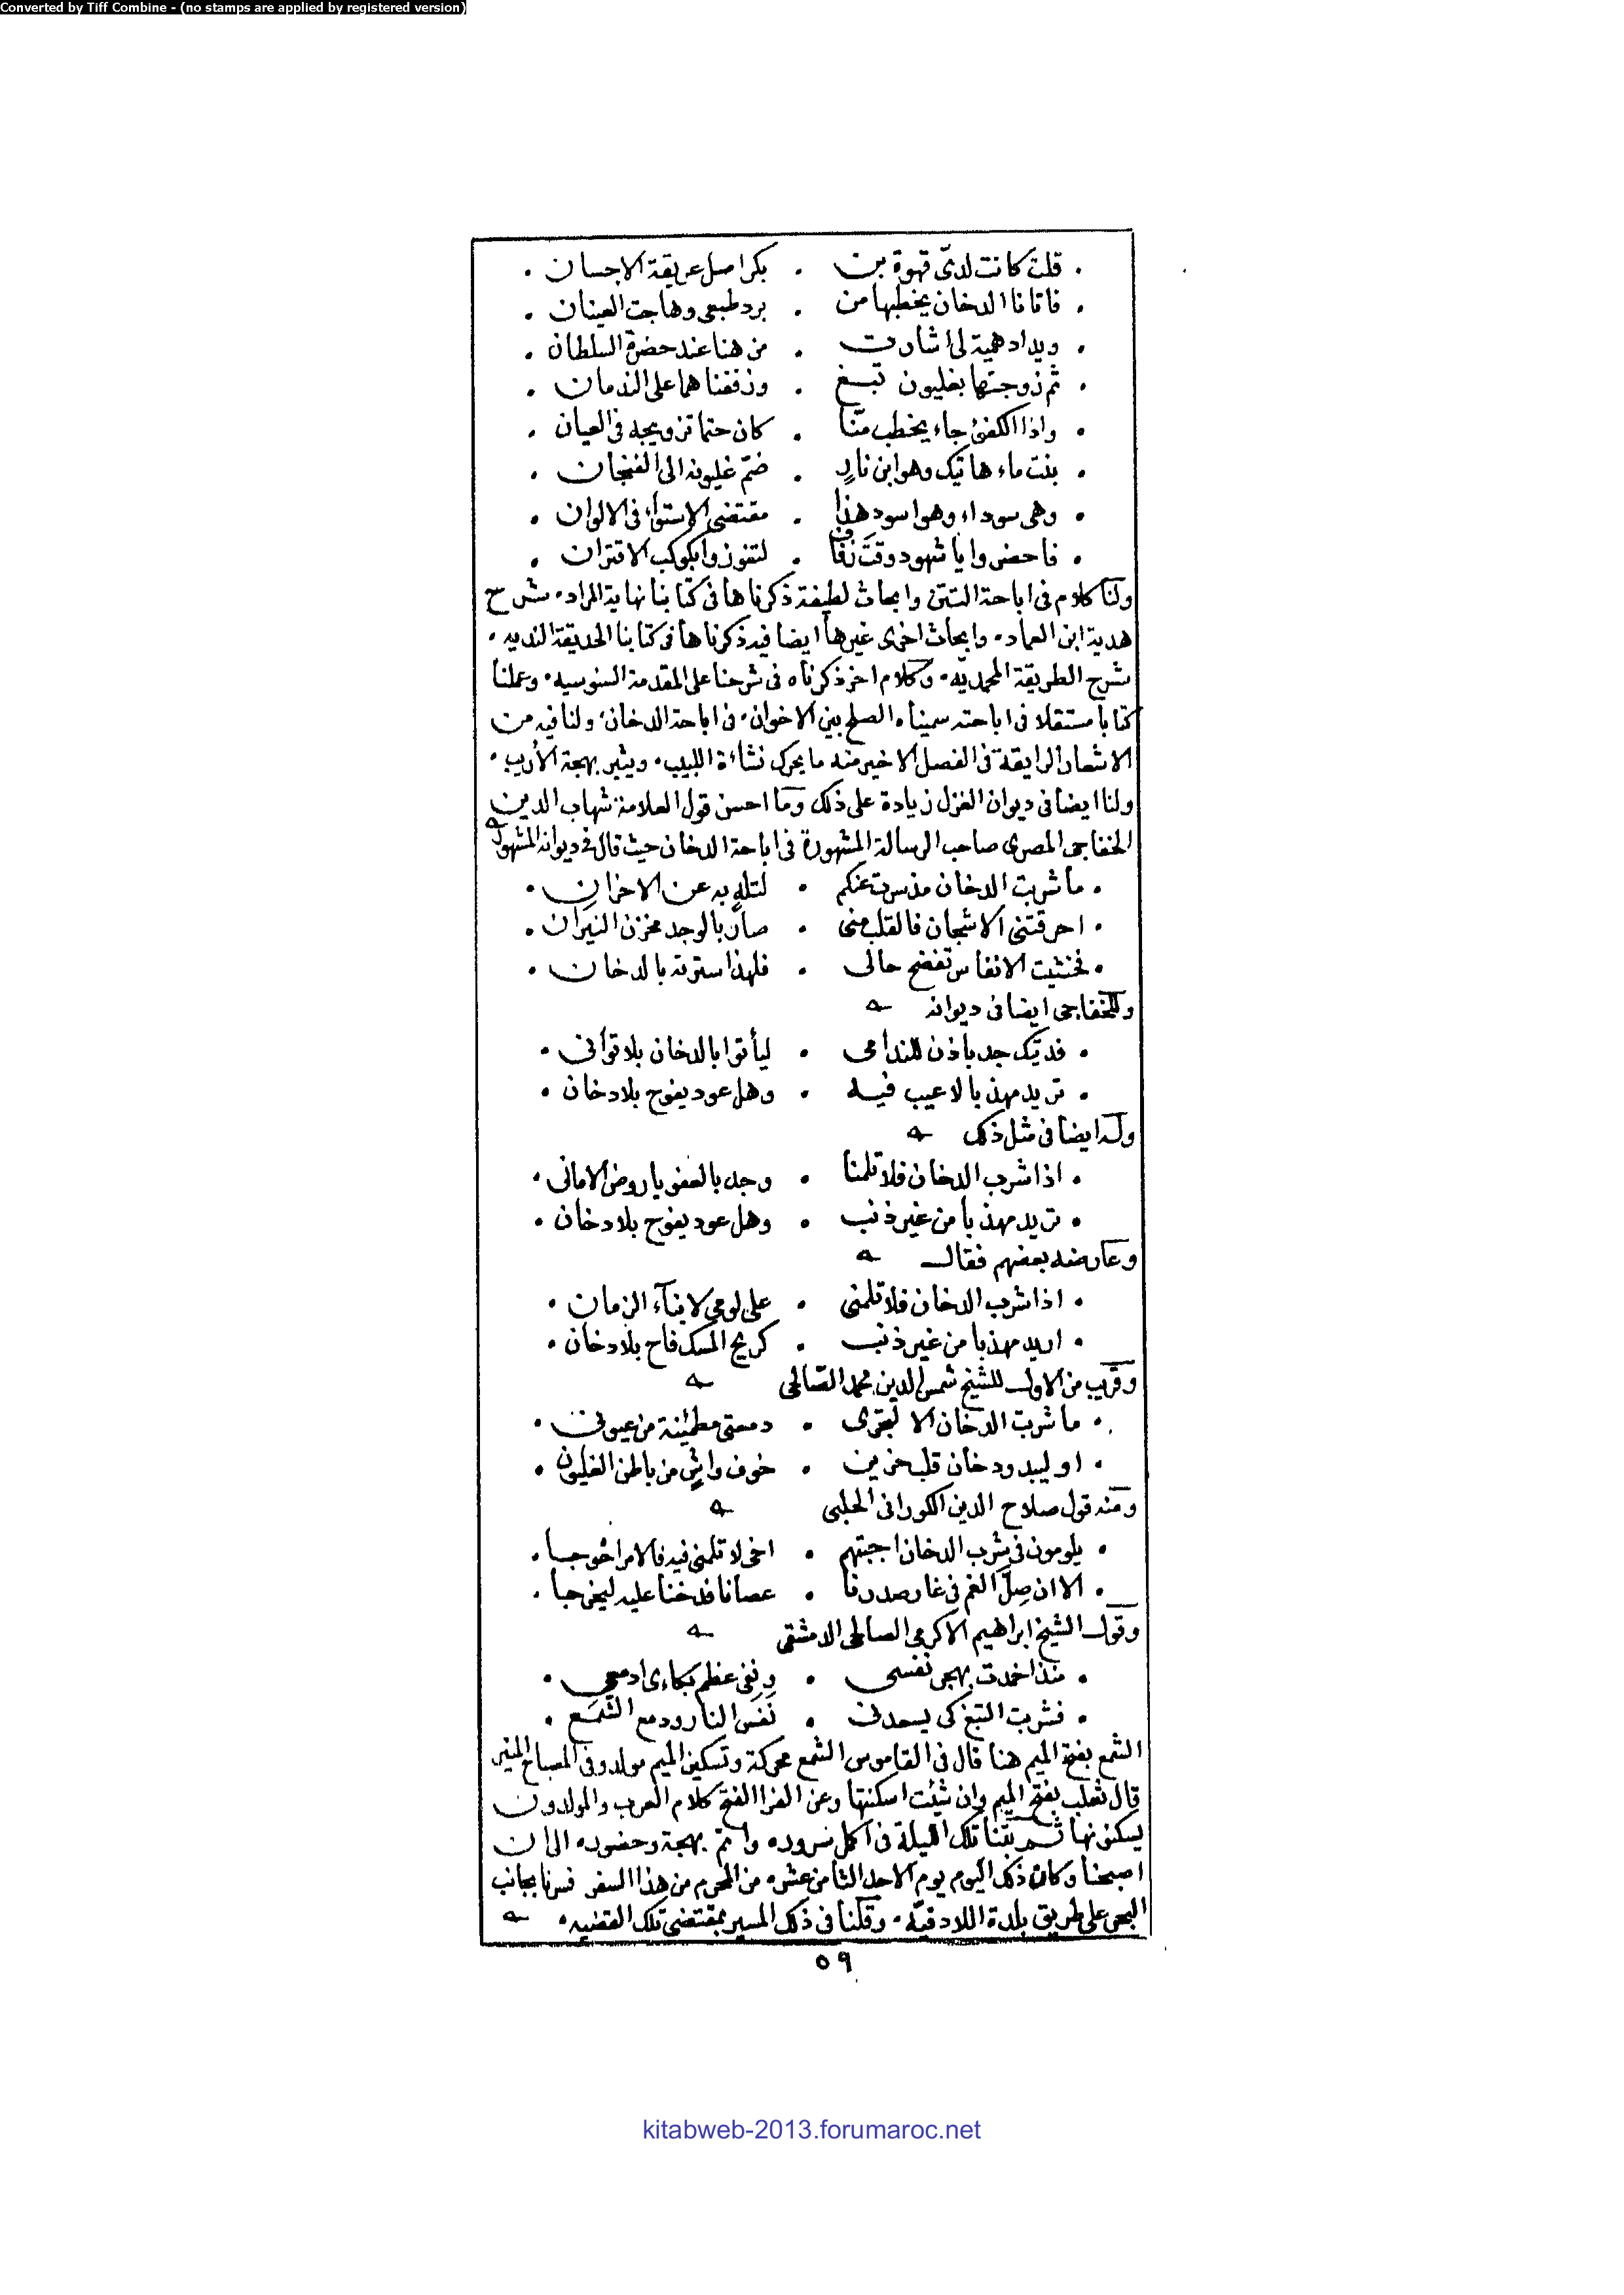 Converted by Tiff Combine - (no stamps are applied by registered version)
. قلت كانت لدىّ قهوة بن . بكر اصل عريقة الاحسان .
. فاتانا الدخان يخطبها من . برد طبعى وهاجت العينان .
. ويد ادهمية لى اشارت . من هنا عند حضرة السلطان .
. ثم زوجتها بغليون تبغ . وزففناهما على الندمان .
. واذا الكفئ جاء يخطب منّا . كان حتما تزويجه فى العيان .
. بنت ماء هاتيك وهو ابن نارٍ . ضمّ غليونه الى الفنجان .
. وهى سوداء وهو اسود هذا . مقتضى الاستواء فى الالوان .
. فاحضروا يا شهود وقت زفاف . لتفوزوا بكوكب الاقتران .
ولنا كلام فى اباحة التتن وابحاث لطيفة ذكرناها فى كتابنا نهاية المراد . شرح
هدية ابن العماد . وابحاث اخرى غيرها ايضا فيه ذكرناها فى كتابنا الحديقة الندية .
شرح الطريقة المحمديّه . وكلام اخر ذكرناه فى شرحنا على المقدمة السنوسيه . وعملنا
كتابا مستقلا فى اباحته سميناه الصلح بين الاخوان . فى اباحة الدخان . ولنا فيه من
الاشعار الرايقة فى الفصل الاخير منه ما يحرك نشاءة اللبيب . ويثير بهجة الأريب .
ولنا ايضا فى ديوان الغزل زيادة على ذلك وما احسن قول العلامة شهاب الدين
الخفاجى المصرى صاحب الرسالة المشهورة فى اباحة الدخان حيث قال فى ديوانه المشهور
. ما شربت الدخان مذ سرت عنكم . لتلهٍ به عن الاحزان .
. احرقتنى الاشجان فالقلب منى . صار بالوجد مخزن النيران .
. فخشيت الانفاس تفضح حالى . فلهذا سترته بالدخان .
وللخفاجى ايضا فى ديوانه
. فديتك جد باذن للندامى . ليأتوا بالدخان بلا توانى .
. تريد مهذبا لا عيب فيه . وهل عود يفوح بلا دخان .
وله ايضا فى مثل ذلك
. اذا شرب الدخان فلا تلمنا . وجد بالعفو يا روض الامانى .
. تريد مهذبا من غير ذنب . وهل عود يفوح بلا دخان .
وعارضه بعضهم فقال
. اذا شرب الدخان فلا تلمنى . على لومى لابناء الزمان .
. اريد مهذبا من غير ذنب . كريح المسك فاح بلا دخان .
وقريب من الاول للشيخ شمس الدين محمد الصّالحى
. ما شربت الدخان الا لتجرى . دمعتى مطمئنة من عيونى .
. او ليبدو دخان قلب حزين . خوف واشٍ من باطن الغليون .
ومنه قول صلاح الدين الكورانى الحلبى
. يلومون فى شرب الدخان اجبتهم . اخى لا تلمنى فيه فالامر احوجا .
. الا ان صلّ الغم فى غار صدرنا . عصانا فدخنا عليه ليخرجا .
وقول الشيخ ابراهيم الاكرمى الصالحى الدمشقى
. منذ اخمدت بهجر نفسى . ونفى عظم بكاءى ادمعى .
. فشربت التبغ كى يسعدنى . نَفَس النار ودمع الشَمَع .
الشمع بفتح الميم هنا قال فى القاموس الشمع محركة وتسكين الميم مولد وفى المصباح المنير
قال ثعلب بفتح الميم وان شئت اسكنتها وعن الفرا الفتح كلام العرب والمولدون
يسكنونها ثم بتنا تلك الليلة فى اكمل سروره واتمّ بهجة وحضوره الى ان
اصبحنا وكان ذلك اليوم يوم الاحد الثامن عشر من المحرم من هذا السفر فسرنا بجانب
البحر على طريق بلدة اللادقيّه . وقلنا فى ذلك المسير بمقتضى تلك القضيه .
٥٩
kitabweb-2013.forumaroc.net